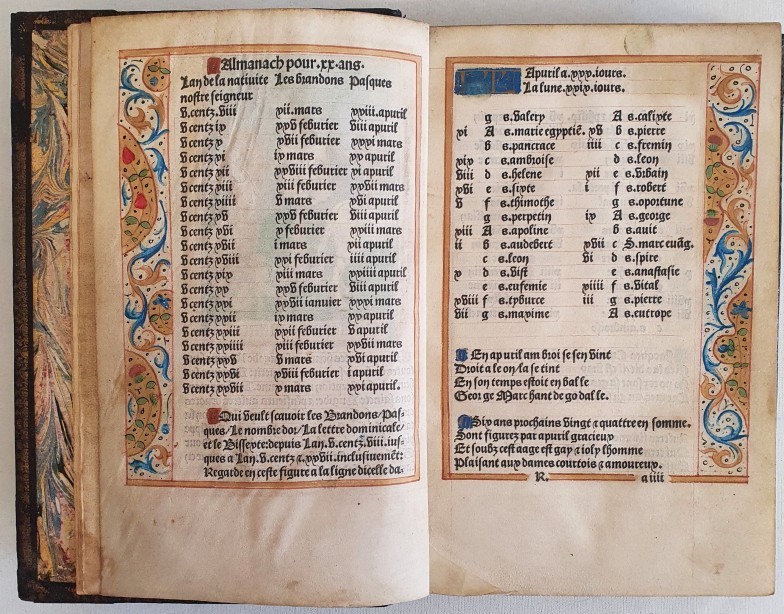 Almanach pour.xx.ans.
Lan de la nativite Les brandons Pasques
nostre seigneur
V centz viii xii.mars xxiii.apuril
V centz ix xxv feburier viii apuril
V centz x xvii feburier xxxi mars
V centz xi ix mars xx apuril
V centz xii xxviii feburier xi apuril
V centz xiii xiii feburier xxvii mars
V centz xiiii v mars xvi apuril
V centz xv xxv feburier viii apuril
V centz xvi x feburier xxiii mars
V centz xvii i mars xii apuril
V centz xviii xxi feburier iiii apuril
V centz xix xiii mars xxiiii apuril
V centz xx xxv feburier viii apuril
V centz xxi xxvii ianuier xxxi mars
V centz xxii ix mars xx apuril
V centz xxiii xxii feburier v apuril
V centz xxiiii xiii feburier xxvii mars
V centz xxv v mars xvi apuril
V centz xxvi xviii feburier i apuril
V centz xxvii x mars xxi apuril.
Qui veult scauoir les Brandons/Pas-
ques/Le nombre dor/La lettre dominicale/
et le Bissexte depuis Lan.V.centz.viii.ius-
ques a Lan.V.centz ⁊.xxvii.inclusiuemēt:
Regarde en ceste figure a la ligne dicelle da.
Apuril a.xxx.iours.
La lune.xxix.iours.
g s.valery
xi A s.marie egyptiē.
b s.pancrace
xix c s.ambroise
viii d s.helene
xvi e s.sixte
v f s.thimothe
g s.perpetin
xiii A s.apoline
ii b s.audebert
c s.leon
x d s.vist
e s.eufemie
xviii f s.tyburce
vii g s.maxime
A s.calixte
xv b s.pierre
iiii c s.fremin
d s.leon
xii e s.vrbain
i f s.robert
g s.oportune
ix A s.george
b s.auit
xvii c S.marc euāg.
vi d s.spire
e s.anastasie
xiiii f s.vital
iii g s.pierre
A s.eutrope
En apuril ambroi se sen vint
Droit a leon/la se tint
En son temps estoit en balle
George Marchant de godalle.
Six ans prochains vingt ⁊ quattre en somme.
Sont figurez par apuril gracieux
Et soubz cest aage est gay ⁊ ioly lhomme
Plaisant aux dames courtois ⁊ amoureux.
R. a iiii